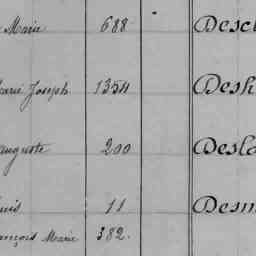 Marie 688 Desc
Marie Joseph 1354 Desh
Auguste 200 Desla
uis 11 Desm
ançois Marie 382.